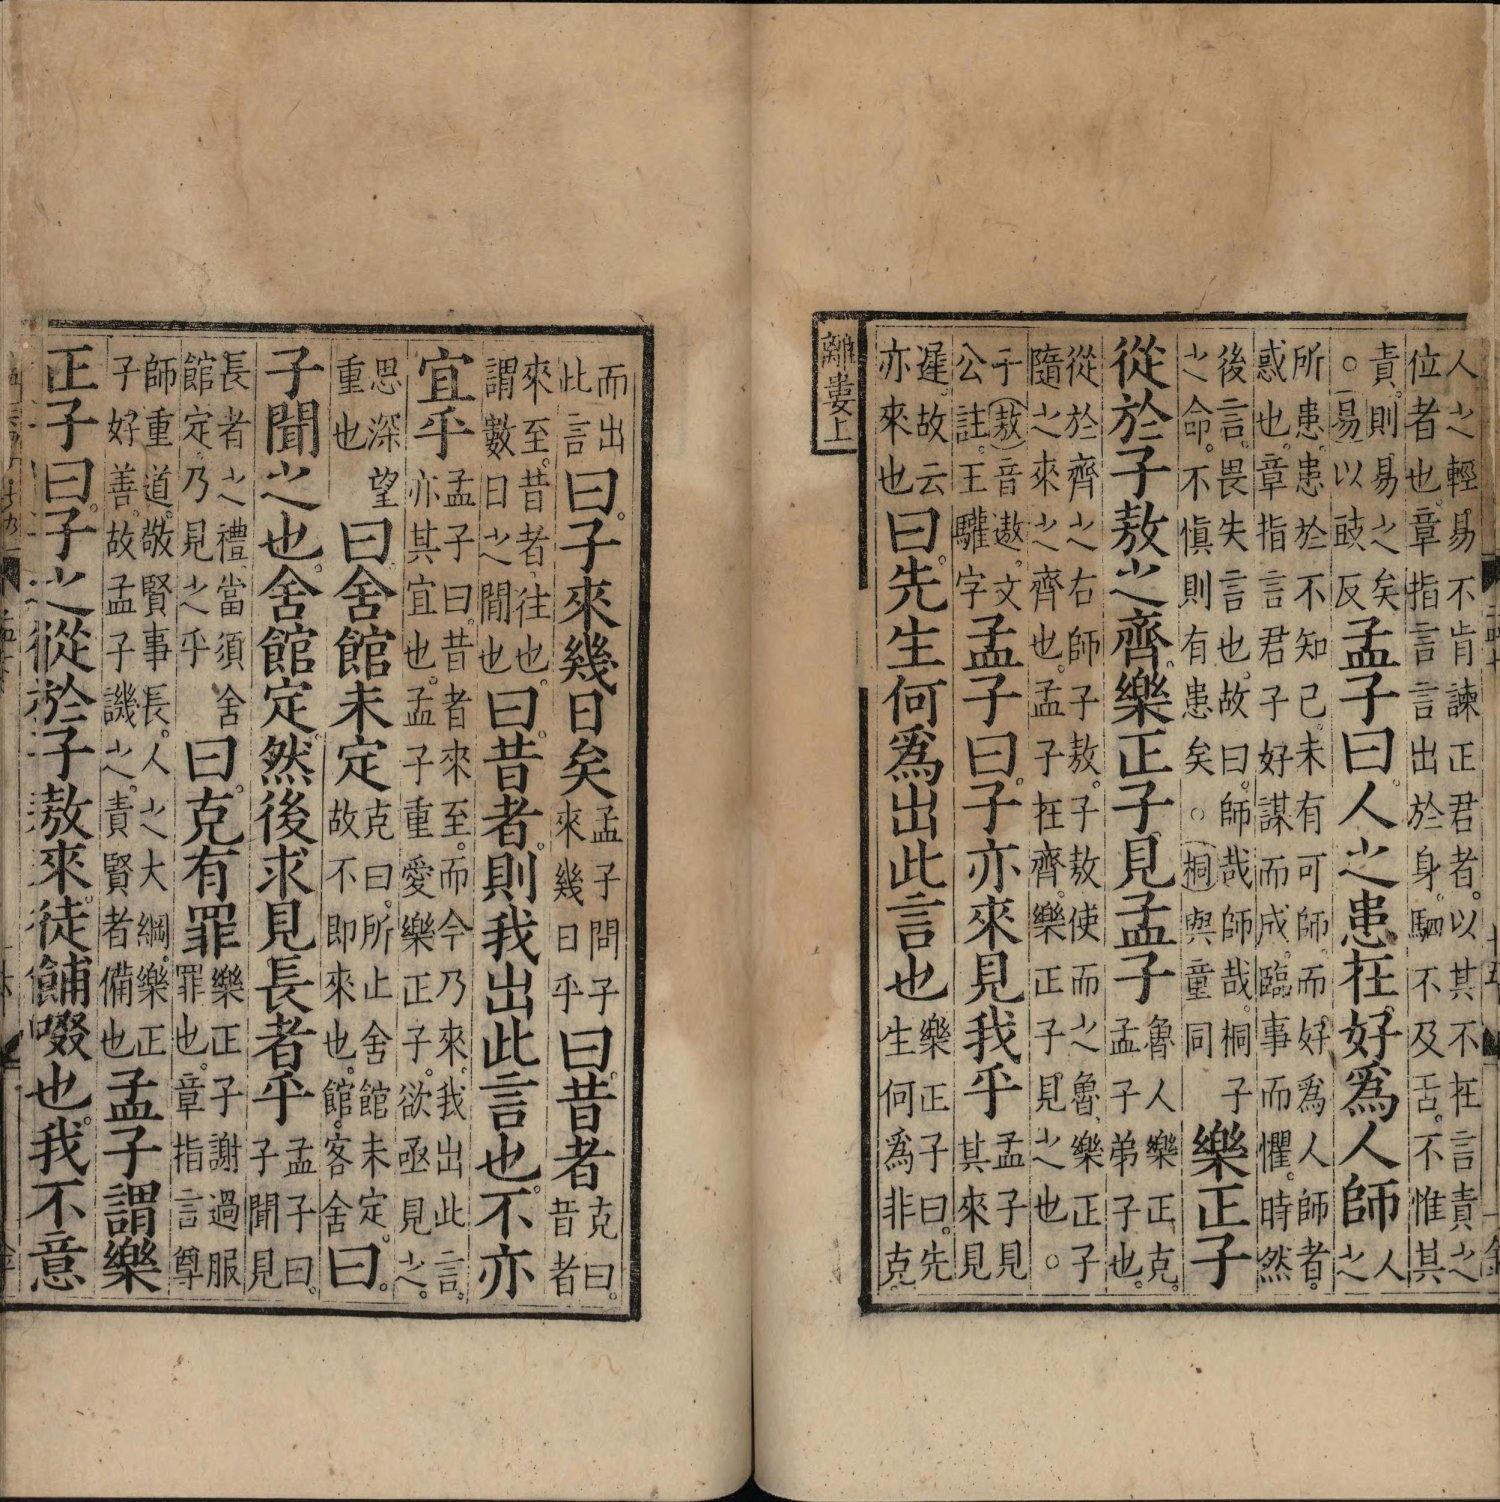 人之輕易不肯諫正君者。以其不在言責之
位者也。章指言言出於身。駟不及舌。不惟其
責。則易之矣
○易以豉反
孟子曰。人之患在。好爲人。師
人
之
所患。患於不知己。未有可師。而好爲人師者。
惑也。章指言君子好謀而成。臨事而懼。時然
後言。畏失言也。故曰。師哉師哉。桐子
之命。不愼則有患矣○桐與童同
樂正子
從於子敖之齊。樂正子見孟子
魯人樂正克。
孟子弟子也。
從於齊之右師子敖。子敖使而之魯。樂正子
隨之來之齊也。孟子在齊。樂正子見之也。○
于敖音遨。文
公註。王驩字
孟子曰。子亦來見我乎
孟子見
其來見
遲。故云
亦來也
曰。先生何爲出此言也
樂正子曰。先
生何爲非克。
離婁上
而出
此言
曰。子來幾日矣
孟子問子
來幾日乎
曰。昔者
克曰。
昔者
來至。昔者往也。
謂數日之間也
曰。昔者。則我出此言也。不亦
宜乎
孟子曰。昔者來至。而今乃來。我出此言。
亦其宜也。孟子重愛樂正子。欲亟見之。
思深望
重也
曰舍館未定
克曰。所止舍館未定。
故不即來也。館。客舍
曰。
子聞之也。舍館定。然後求見長者乎
孟子曰。
子聞見
長者之禮。當須舍
館定。乃見之乎
曰。克有罪
樂正子謝過服
罪也。章指言尊
師重道。敬賢事長。人之大綱。樂正
子好善。故孟子譏之。責賢者備也
孟子謂樂
正子曰。子之從於子敖來。徒餔啜也。我不意